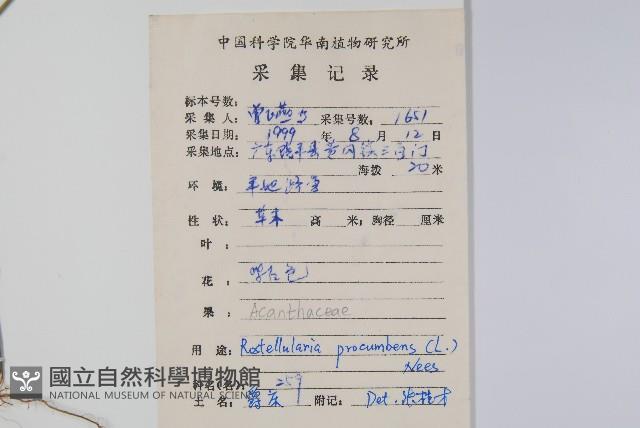 中国科学院华南植物研究所
采 集 记 录
标本号数:
采 集 人: 曾 采集号数: 1651
采集日期: 1999 年 8 月 12 日
采集地点: 广东饶平县黄冈镇三百门
海拨 20 米
环 境: 平地
性 状: 草本 高 米; 胸径 厘米
叶 :
花 : 紫红色
果 : Acanthaceae
用 途: Rostellularia procumbens (L.)
Nees
國立自然科學博物館
NATIONAL MUSEUM OF NATURAL SCIENCE
科名(名): 259
土 名: 爵床 附记: Det.